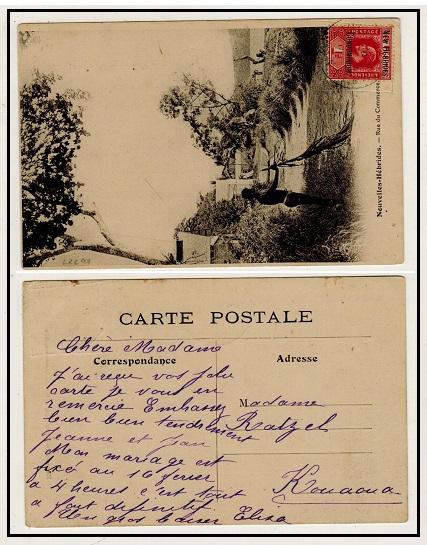 Nouvelles-Hébrides. — Rue du Commerce
POSTAGE
NEW HEBRIDES
& REVENUE
CARTE POSTALE
Correspondance
Adresse
Chère Madame
J'ai reçu vos jolie
carte je vous en
remercie Embrassez
bien bien tendrement
Jeanne et Jean
Mon mariage est
fixé au 16 fevrier
a 4 heures c'est tout
a fait difinitif
Un gros baiser Elisa
Madame
Ratzel
Kouaoua